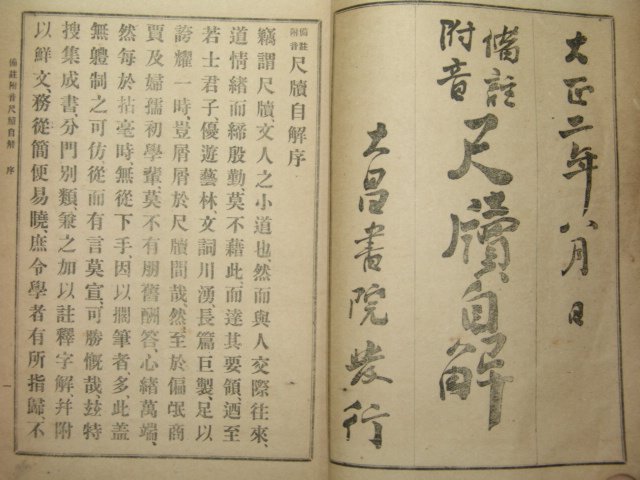 大正二年八月日
備註
附音
尺牘自解
大昌書院發行
備註
附音
尺牘自解序
竊謂尺牘、文人之小道也、然而與人交際往來、
道情緒而締殷勤、莫不藉此、而達其要領、迺至
若士君子、優遊藝林、文詞川湧、長篇巨製、足以
誇耀一時、豈屑屑於尺牘間哉、然至於偏氓商
賈、及婦孺初學輩、莫不有朋舊酬答、心緒萬端、
然每於拈毫時、無從下手、因以擱筆者、多、此蓋
無體制之可仿從、而有言莫宣、可勝慨哉、玆特
搜集成書、分門別類、兼之加以註釋字解、并附
以鮮文、務從簡便易曉、庶令學者有所指歸、不
備註附音尺牘自解 序
一